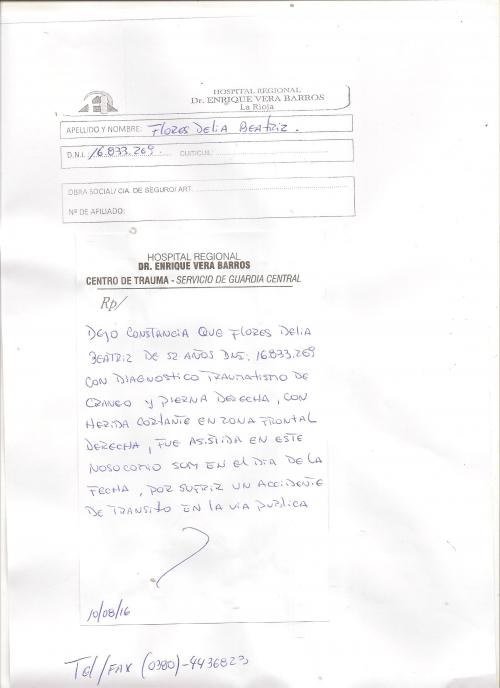 HOSPITAL REGIONAL
Dr. ENRIQUE VERA BARROS
La Rioja
APELLIDO Y NOMBRE: FLORES DELIA BEATRIZ.
D.N.I. 16.833.269. CUIT/CUIL:
OBRA SOCIAL/ CIA. DE SEGURO/ ART.
Nº DE AFILIADO:
HOSPITAL REGIONAL
DR. ENRIQUE VERA BARROS
CENTRO DE TRAUMA - SERVICIO DE GUARDIA CENTRAL
Rp/
DEJO CONSTANCIA QUE FLORES DELIA
BEATRIZ DE 52 AÑOS DNI: 16.833.269
CON DIAGNOSTICO TRAUMATISMO DE
CRANEO Y PIERNA DERECHA, CON
HERIDA CORTANTE EN ZONA FRONTAL
DERECHA, FUE ASISTIDA EN ESTE
NOSOCOMIO EN EL DIA DE LA
FECHA, POR SUFRIR UN ACCIDENTE
DE TRANSITO EN LA VIA PUBLICA
10/08/16
Tel/FAX (0380)-4436823